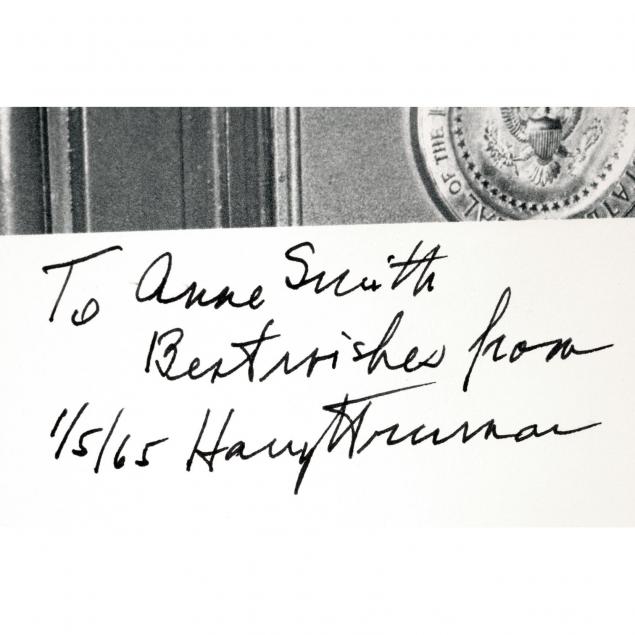 SEAL OF THE
STATES
To Anne Smith
Best wishes from
1/5/65 Harry Truman